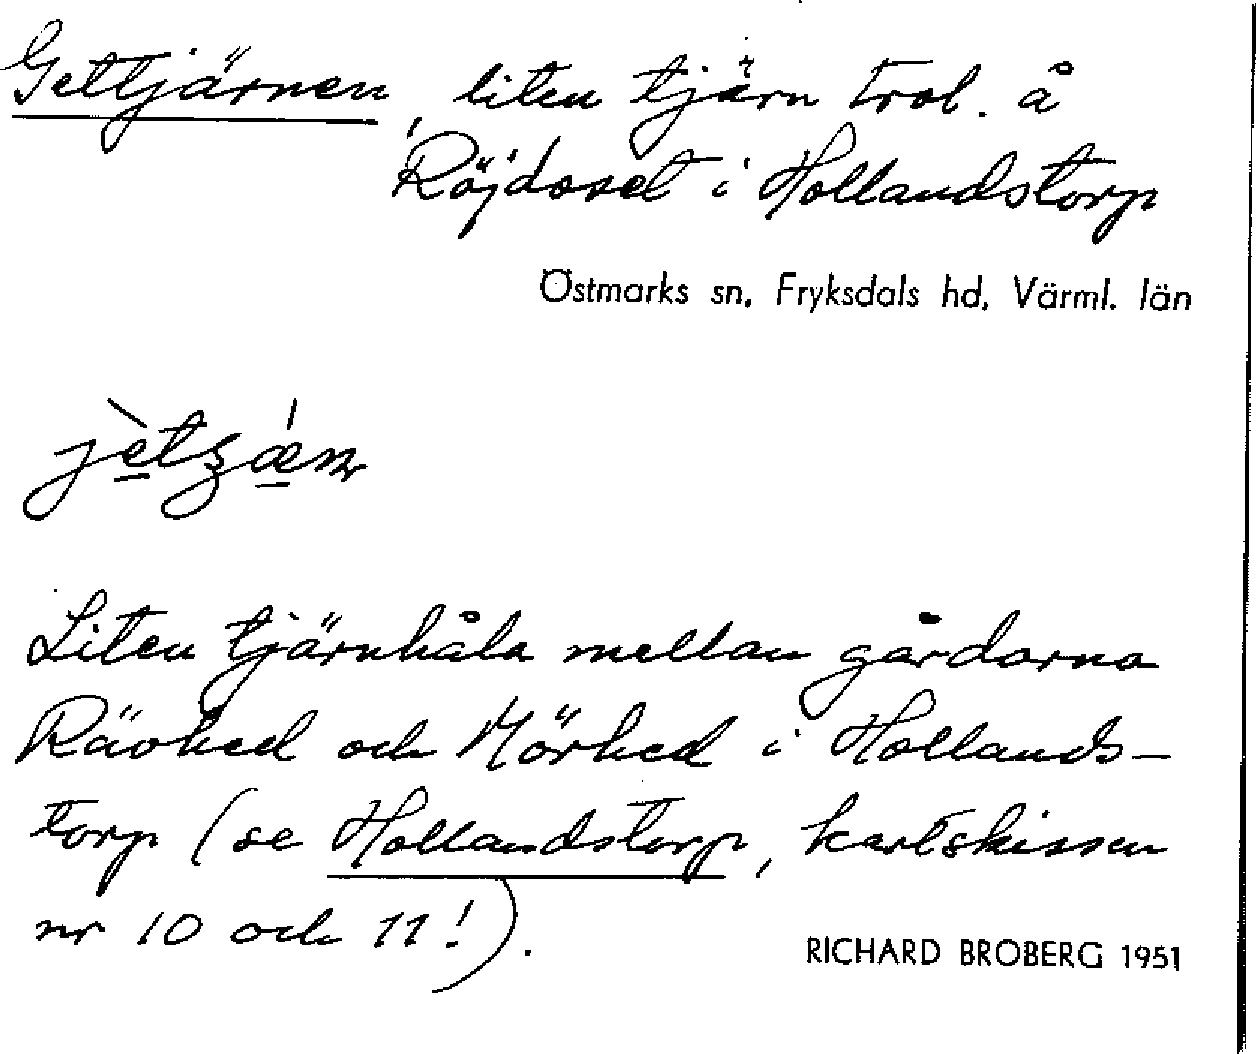 Gettjärnen, liten tjärn trol. å
Röjdoset i Hollandstorp
Östmarks sn, Fryksdals hd, Värml. län
Liten tjärnhåla mellan gårdarna
Rävhed och Mörhed i Hollands-
torp (se Hollandstorp, kartskissen
nr 10 och 11!).
RICHARD BROBERG 1951